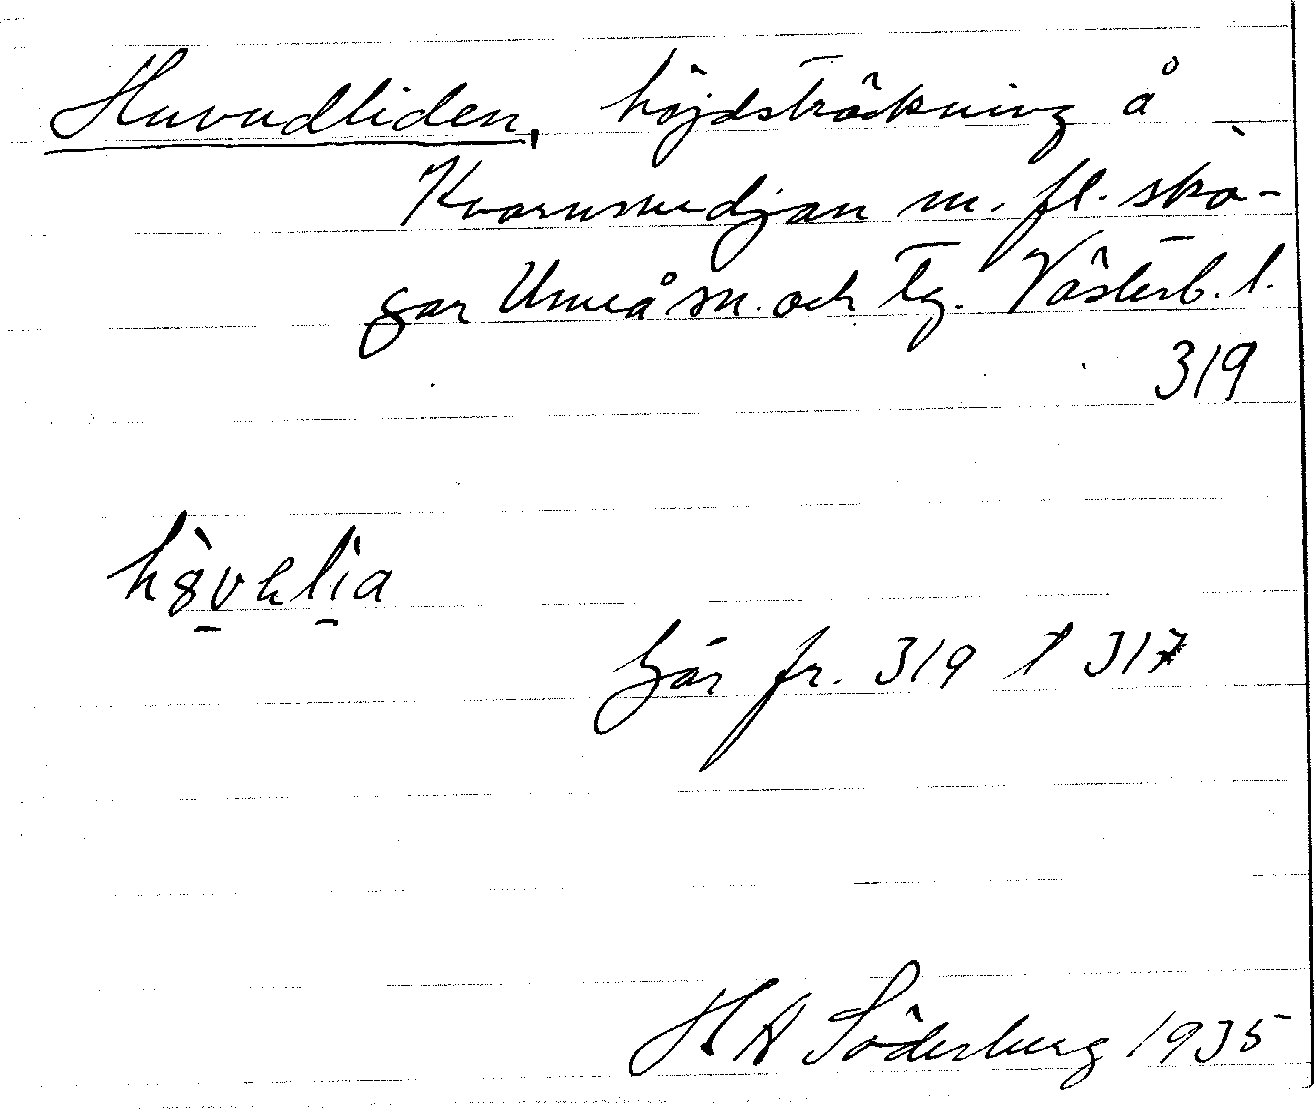 Huvudliden, höjdsträckning å
Kvarnsmedjan m. fl. sko-
gar Umeå sn. och tg. Västerb. l.
319
går fr. 319 t 317
H A Söderberg 1935